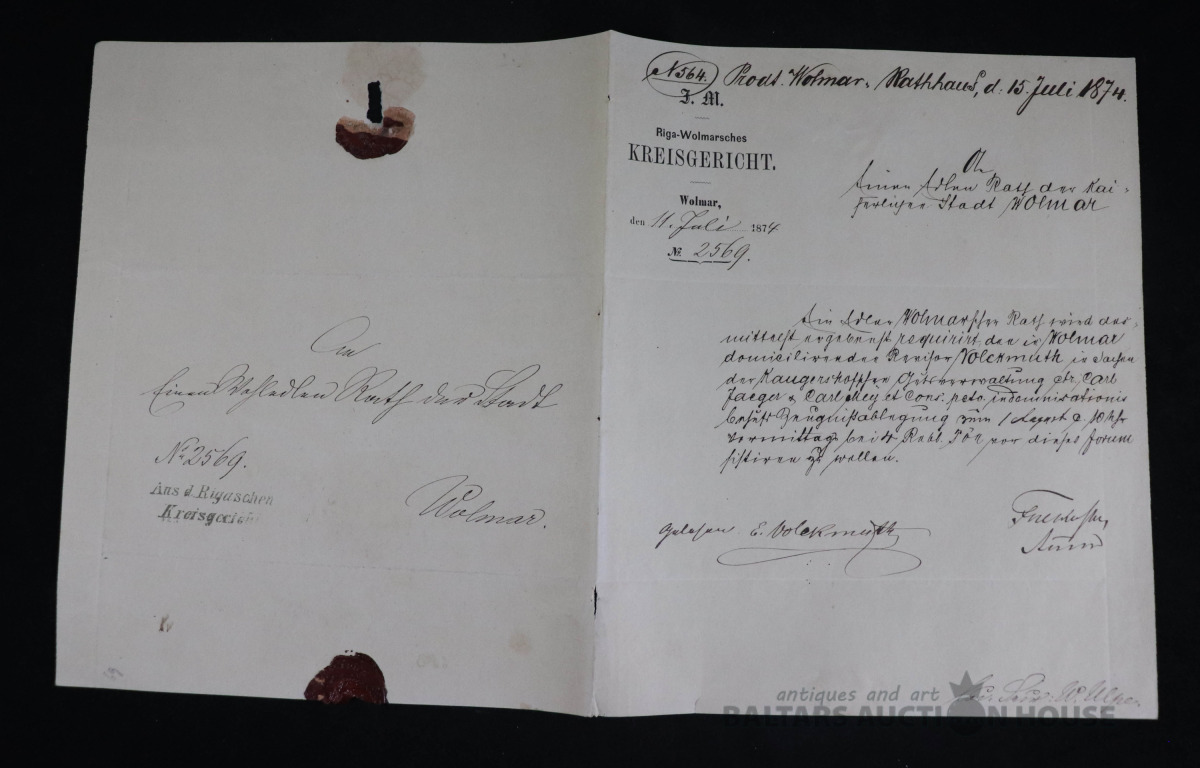 An
Einen Wohledlen Rath der Stadt
Wolmar.
№ 2569.
Aus d. Rigaschen
Kreisgericht
№ 564. Prodt. Wolmar-Rathhaus, d. 15. Juli 1874.
J. M.
Riga-Wolmarsches
KREISGERICHT.
Wolmar,
den 11. Juli 1874
№ 2569.
An
Einen Edlen Rath der Kai-
serlichen Stadt Wolmar
Ein Edler Wolmarscher Rath wird des-
mittelst ergebenst requirirt den in Wolmar
domicilirenden Revisor Volckmuth in Sachen
der Kaugershofschen Gutsverwaltung ctr. Carl
Jaeger & Carl et Cons. pcto. indemnisationis
behufs Zeugnißablegung zum 1 August 10 Uhr
vormittags bei 4 Rbl. Pön vor dieses Forum
sistiren zu wollen.
Gelesen E. Volckmuth
antiques and art
BALTARS AUCTION HOUSE